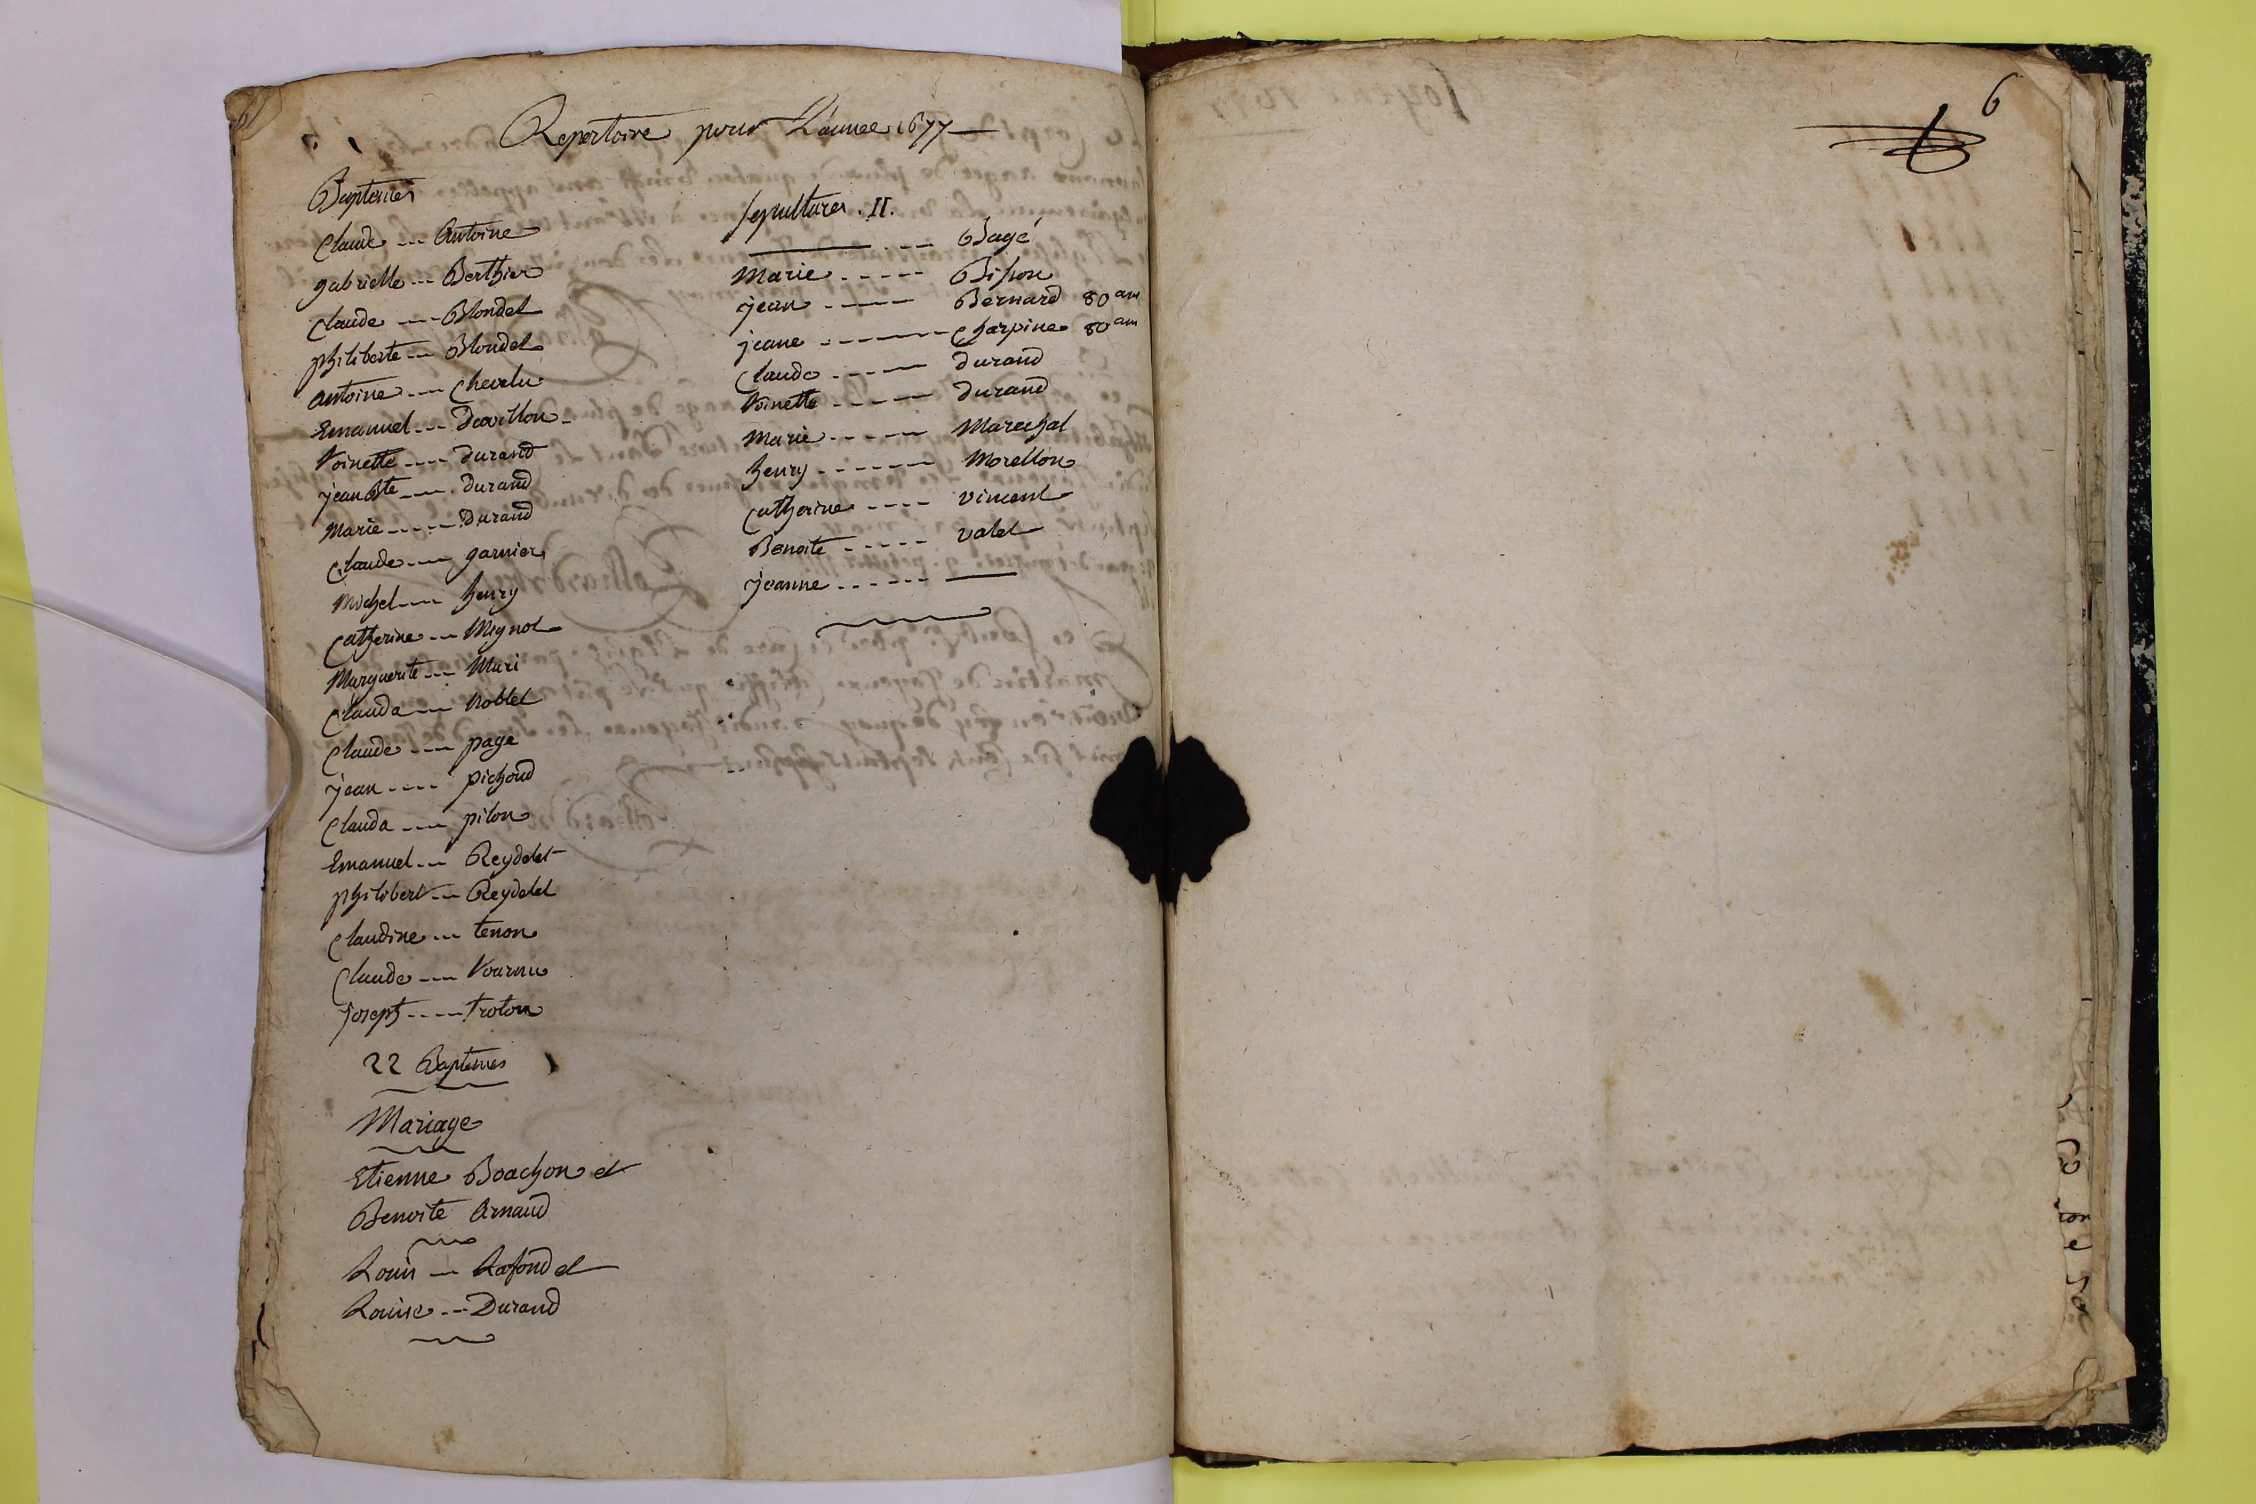 Repertoire pour L'année 1677
Baptemes
Claude --- Antoine
gabrielle --- Berthier
Claude --- Blondel
philiberte --- Blondel
antoine --- Chevelu
Emanuel --- Davillon
Toinette --- durand
jean Bte --- durand
Marie --- durand
Claude --- garnier
Michel --- henry
Catherine --- Mignot
Marguerite --- Mari
Clauda --- Noblet
Claude --- page
jean --- pichoud
Clauda --- pilon
Emanuel --- Reydelet
philibert --- Reydelet
Claudine --- tenon
Claude --- Tournu
joseph --- troton
22 Baptemes
Mariage
Etienne Boachon et
Benoite Arnaud
Louis --- Lafond et
Louise --- Durand
sepultures . 11.
--- Bagé
Marie --- Bison
jean --- Bernard 80 ans
jeane --- Charpine 80 ans
Claude --- durand
Toinette --- durand
Marie --- Marechal
henry --- Morellon
Catherine --- vincent
Benoite --- valet
jeanne ---
6